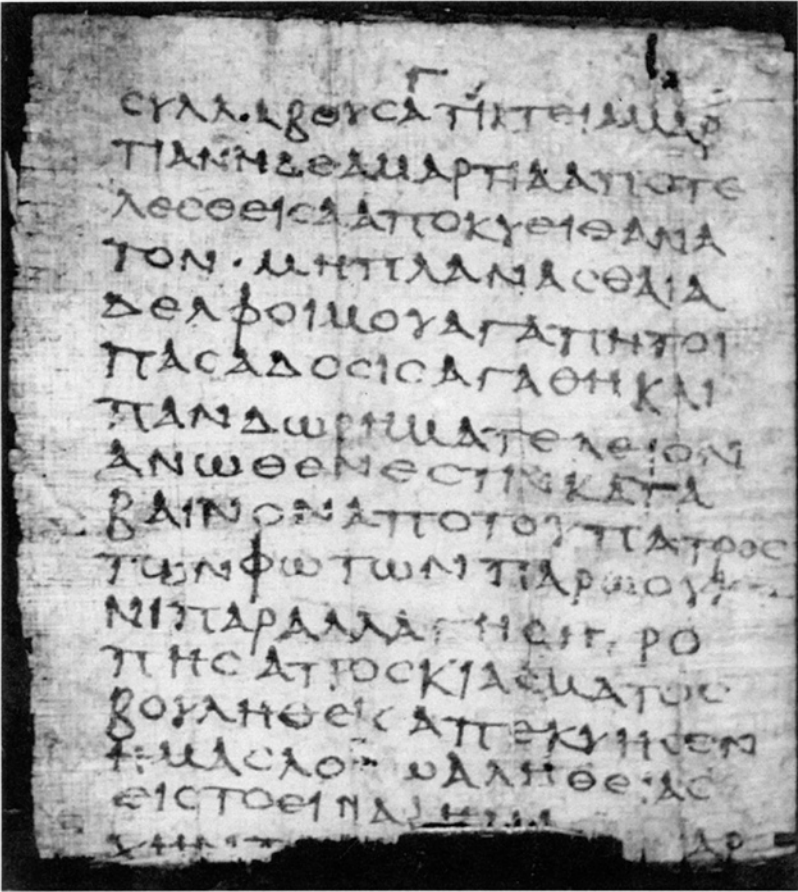 Γ
ϹΥΛΛ·ΑΒΟΥϹΑΤΙΚΤΕΙΑΜΑΡ
ΤΙΑΝΗΔΕΑΜΑΡΤΙΑΑΠΟΤΕ
ΛΕϹΘΕΙϹΑΑΠΟΚΥΕΙΘΑΝΑ
ΤΟΝ·ΜΗΠΛΑΝΑϹΘΑΙΑ
ΔΕΛΦΟΙΜΟΥΑΓΑΠΗΤΟΙ
ΠΑϹΑΔΟϹΙϹΑΓΑΘΗΚΑΙ
ΠΑΝΔΩΡΗΜΑΤΕΛΕΙΟΝ
ΑΝΩΘΕΝΕϹΤΙΝΚΑΤΑ
ΒΑΙΝΟΝΑΠΟΤΟΥΠΑΤΡΟϹ
ΤΩΝΦΩΤΩΝΠΑΡΩΟΥΚΕ
ΝΙΠΑΡΑΛΛΑΓΗϹΗΤΡΟ
ΠΗϹΑΠΟϹΚΙΑϹΜΑΤΟϹ
ΒΟΥΛΗΘΕΙϹΑΠΕΚΥΗϹΕΝ
ΗΜΑϹΛΟΓΩΑΛΗΘΕΙΑϹ
ΕΙϹΤΟΕΙΝΑΙ